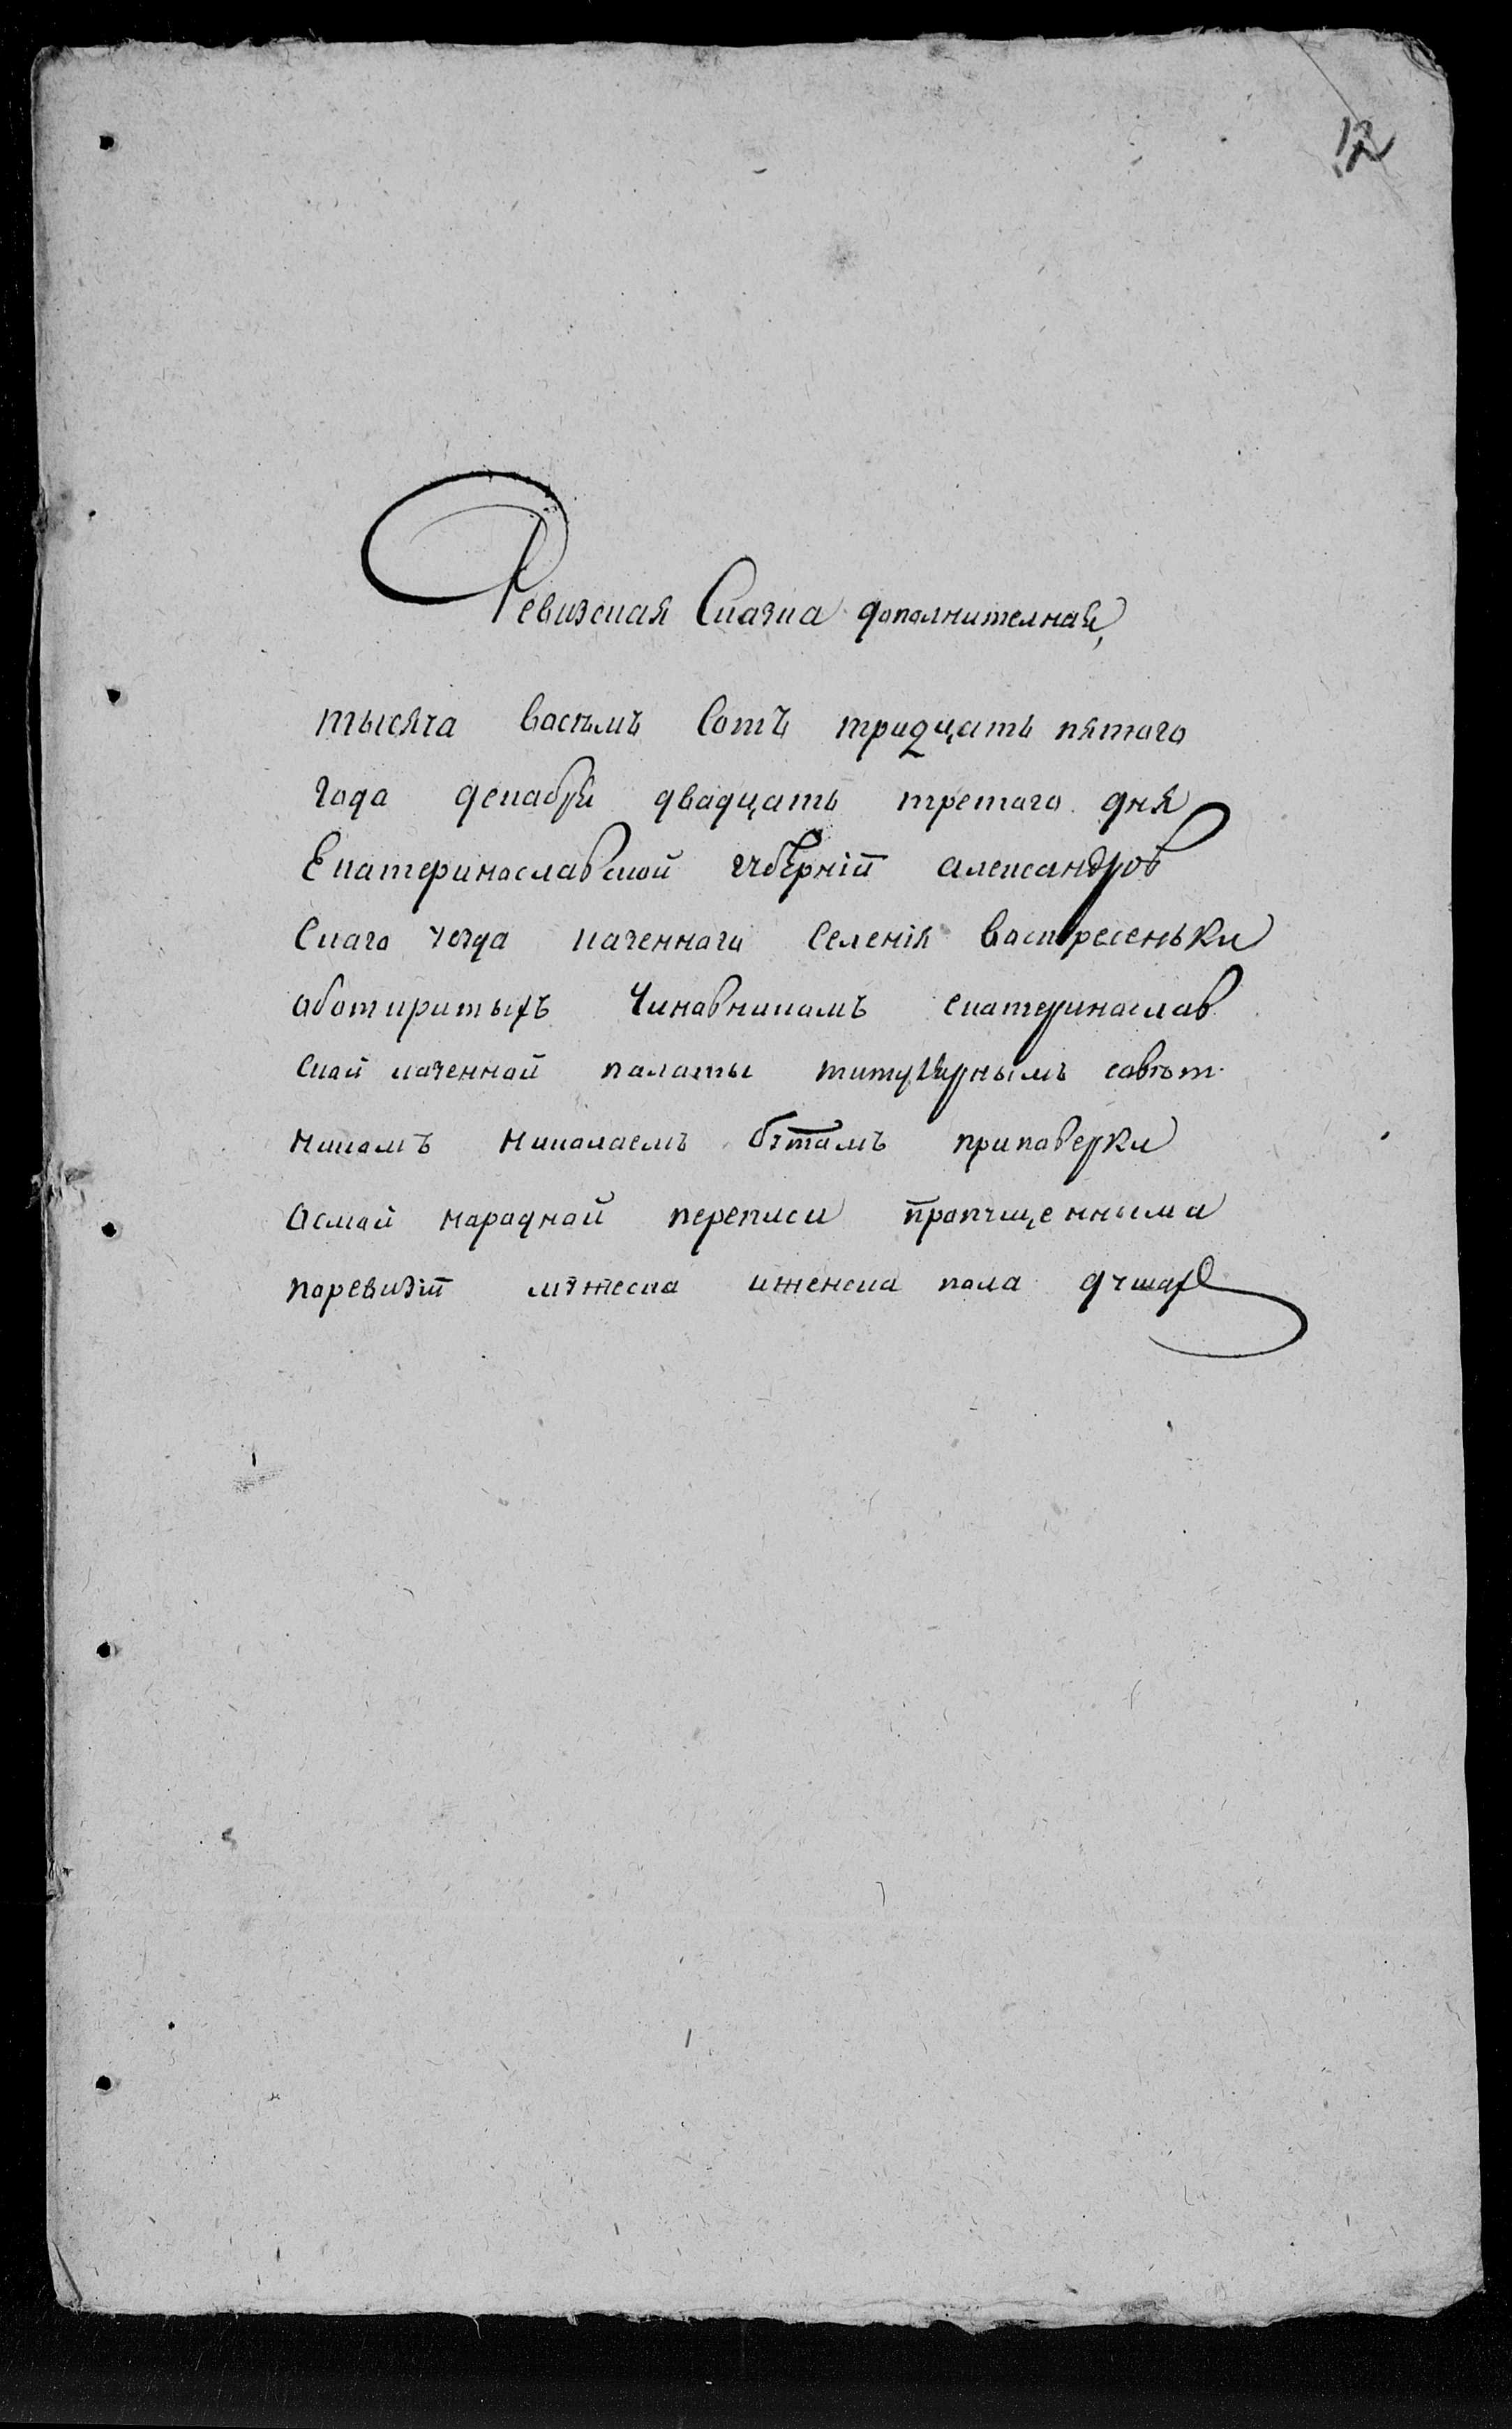 12
Ревизская Сказка дополнителная,
тысяча восемъ Сотъ тридцать пятаго
года декабря двадцать третаго дня
Екатеринославской губернiи александров
Скаго уезда казеннаго Селенiя воскресеньки
аботкритыхъ Чиновникамъ екатеринослав
Скай казеннай палаты титулярнымъ савѣт
никамъ николаемъ приповерки
асмай народнай переписи пропущенныма
поревизiи мужеска иженска пола душах